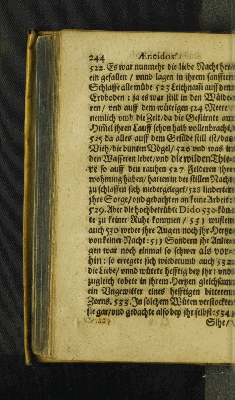 244 Aneidos
522. Es war nunmehr die liebe Nacht her-
ein gefallen / vnnd lagen in ihrem sanfften
Schlaffe alle müde 523 Leichnam auff dem
Erdboden: ja es war still in den Wälde-
ren / vnd auff dem wütigen 524 Meere /
nemlich vmb die Zeit / da die Gestirnte am
Himel ihren Lauff schon halb vollenbracht /
525 da alles auff dem Gefilde still ist / das
Vieh / die bunten Vögel / 526 vnd was in
den Wassern lebet / vnd die wilden Thie-
re so auff den rauhen 527 Felderen ihre
wohnung haben / hatten in der stillen Nacht
zu schlaffen sich nidergeleget / 528 linderten
ihre Sorge / vnd gedachten an keine Arbeit:
529. Aber die hochbetrübte Dido 530 kön-
te zu keiner Ruhe kommen / 531 wusten
auch 530 weder ihre Augen noch ihr Hertze
von keiner Nacht: 531 Sondern ihr Anlie-
gen war noch einmal so schwer als vor-
hin: so erregete sich wiederumb auch 532
die Liebe / vnnd wütete hefftig bey ihr: vnd
zugleich tobete in ihrem Hertzen gleichsam
ein Vngewitter eines hefftigen bitteren
Zorns. 533. In solchem Wüten verstockte
sie gar / vnd gedachte also bey ihr selbst: 534
Sihe /